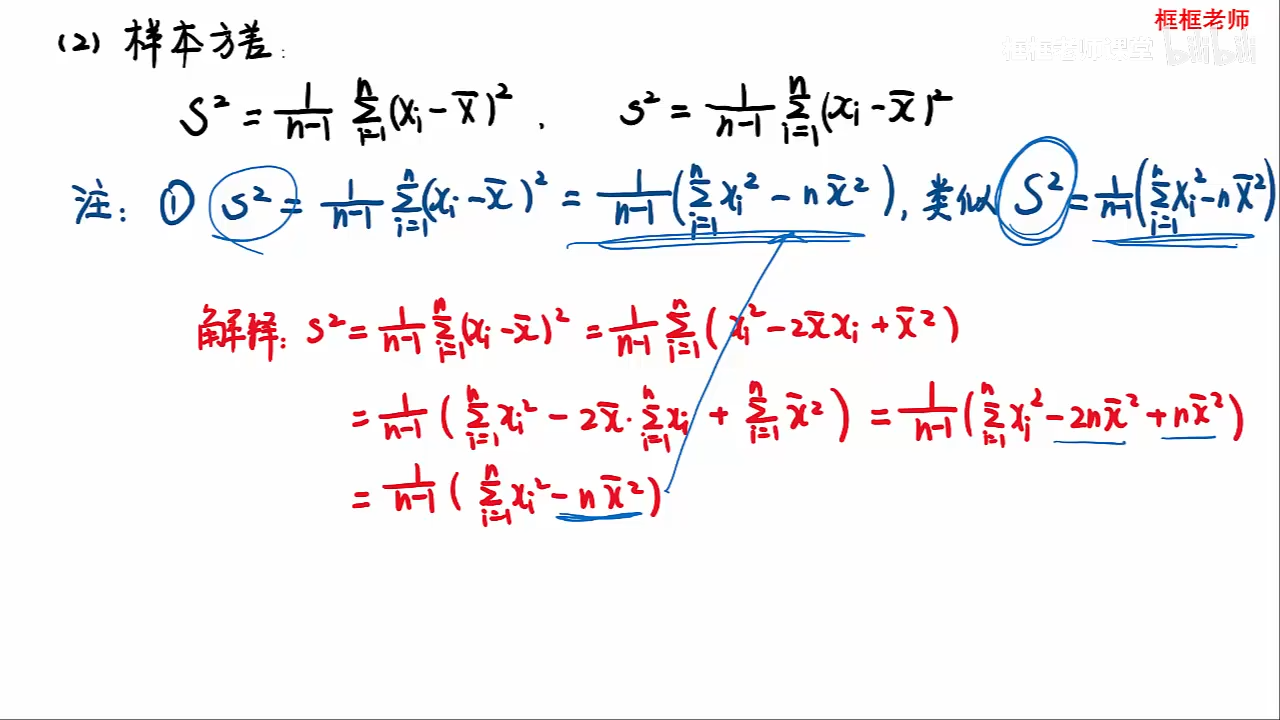 框框老师
框框老师课堂 bilibili
(2) 样本方差:
S² = 1/(n-1) Σ_{i=1}^{n} (Xᵢ - X̄)², s² = 1/(n-1) Σ_{i=1}^{n} (xᵢ - x̄)²
注: ① s² = 1/(n-1) Σ_{i=1}^{n} (xᵢ - x̄)² = 1/(n-1) (Σ_{i=1}^{n} xᵢ² - n x̄²), 类似 S² = 1/(n-1) (Σ_{i=1}^{n} Xᵢ² - n X̄²)
解释: s² = 1/(n-1) Σ_{i=1}^{n} (xᵢ - x̄)² = 1/(n-1) Σ_{i=1}^{n} (xᵢ² - 2x̄xᵢ + x̄²)
= 1/(n-1) (Σ_{i=1}^{n} xᵢ² - 2x̄·Σ_{i=1}^{n} xᵢ + Σ_{i=1}^{n} x̄²) = 1/(n-1) (Σ_{i=1}^{n} xᵢ² - 2nx̄² + nx̄²)
= 1/(n-1) (Σ_{i=1}^{n} xᵢ² - nx̄²)